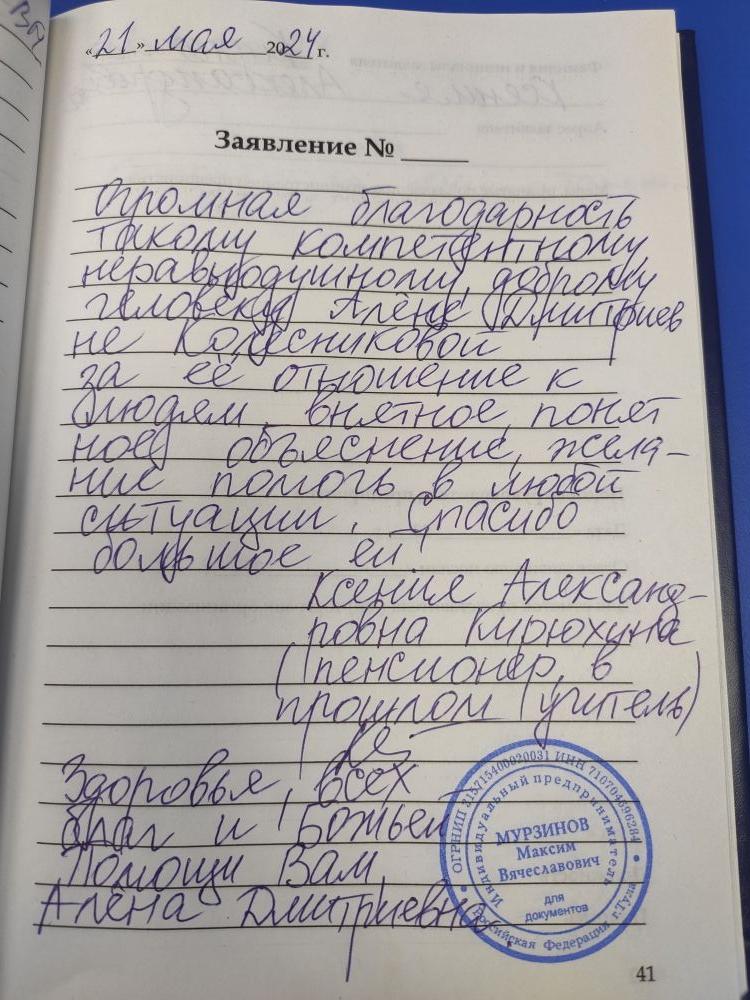 «21» мая 2024 г.
Заявление № ____
Огромная благодарность
такому компетентному,
неравнодушному, доброму
человеку Алёне Дмитриев
не Колесниковой
за её отношение к
людям, внятное, понят
ное объяснение, жела-
ние помочь в любой
ситуации. Спасибо
большое ей!
Ксения Александ-
ровна Кирюхина
(пенсионер, в
прошлом (учитель)
Здоровья, всех
благ и Божьей
Помощи Вам,
Алёна Дмитриевна
ОГРНИП 315715400020031 ИНН 710704596284
Индивидуальный предприниматель
МУРЗИНОВ
Максим
Вячеславович
для
документов
Российская Федерация г.Тула
41